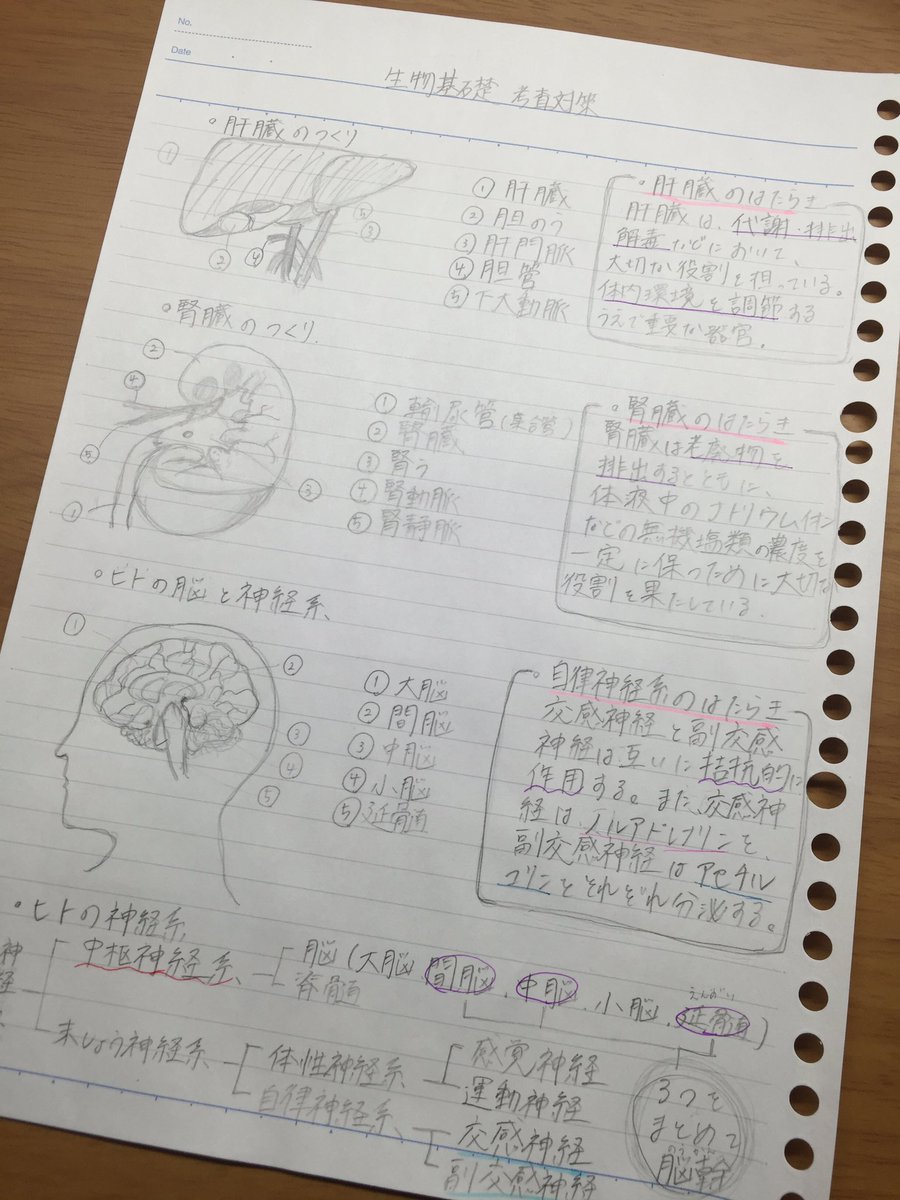 No.
Date
生物基礎 考査対策
。肝臓のつくり
①
②
④
⑤
③
① 肝臓
② 胆のう
③ 肝門脈
④ 胆管
⑤ 下大動脈
。肝臓のはたらき
肝臓は、代謝・排出
解毒などにおいて、
大切な役割を担っている。
体内環境を調節する
うえで重要な器官。
。腎臓のつくり
②
④
⑤
①
③
① 輸尿管(集
② 腎臓
③ 腎う
④ 腎動脈
⑤ 腎静脈
。腎臓のはたらき
腎臓は老廃物を
排出するとともに、
体液中のナトリウムイオン
などの無機塩類の濃度を
一定に保つために大切な
役割を果たしている.
。ヒトの脳と神経系
①
②
③
④
⑤
① 大脳
② 間脳
③ 中脳
④ 小脳
⑤ 延髄
。自律神経系のはたらき
交感神経と副交感
神経は互いに拮抗的に
作用する。また、交感神
経は、ノルアドレナリンを、
副交感神経はアセチル
コリンをそれぞれ分泌する。
。ヒトの神経系
中枢神経系
脳(大脳 間脳、中脳、小脳、延髄)
えんずい
脊髄
末しょう神経系
体性神経系
感覚神経
運動神経
自律神経系
交感神経
副交感神経
3つを
まとめて
脳幹